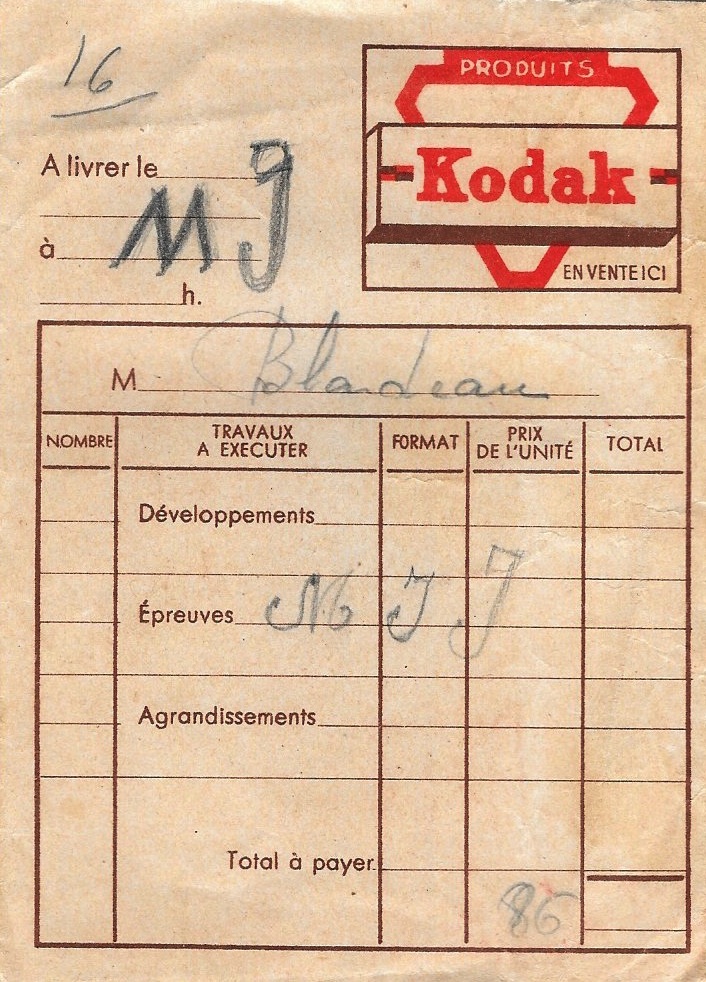 16
PRODUITS
Kodak
EN VENTE ICI
A livrer le
M J
à
h.
M Blandeau
NOMBRE TRAVAUX A EXECUTER FORMAT PRIX DE L'UNITÉ TOTAL
Développements
Épreuves M J J
Agrandissements
Total à payer
86